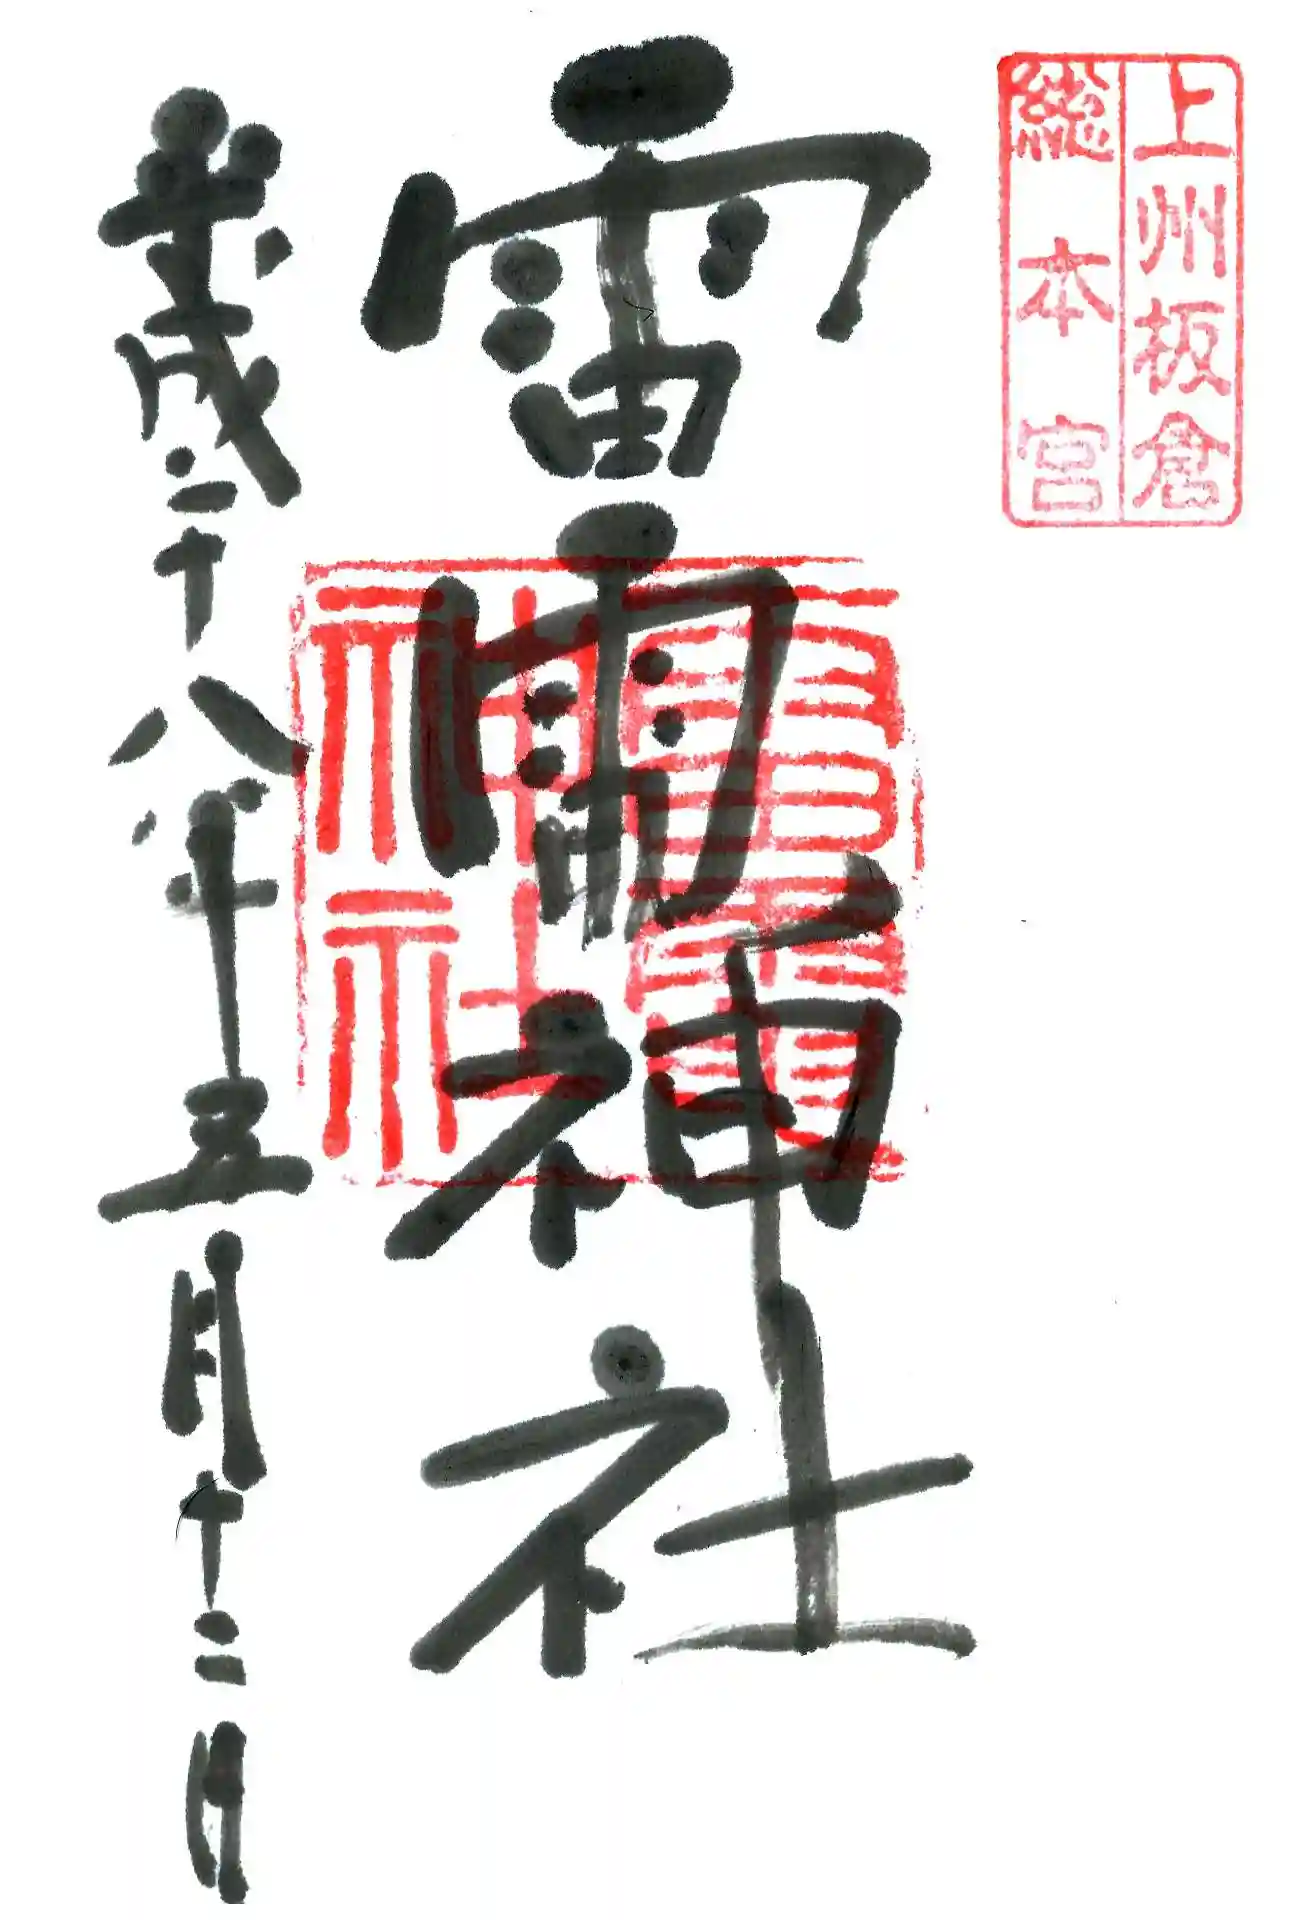 上州板倉
総本宮
雷電神社
雷電神社
平成二十八年五月十二日